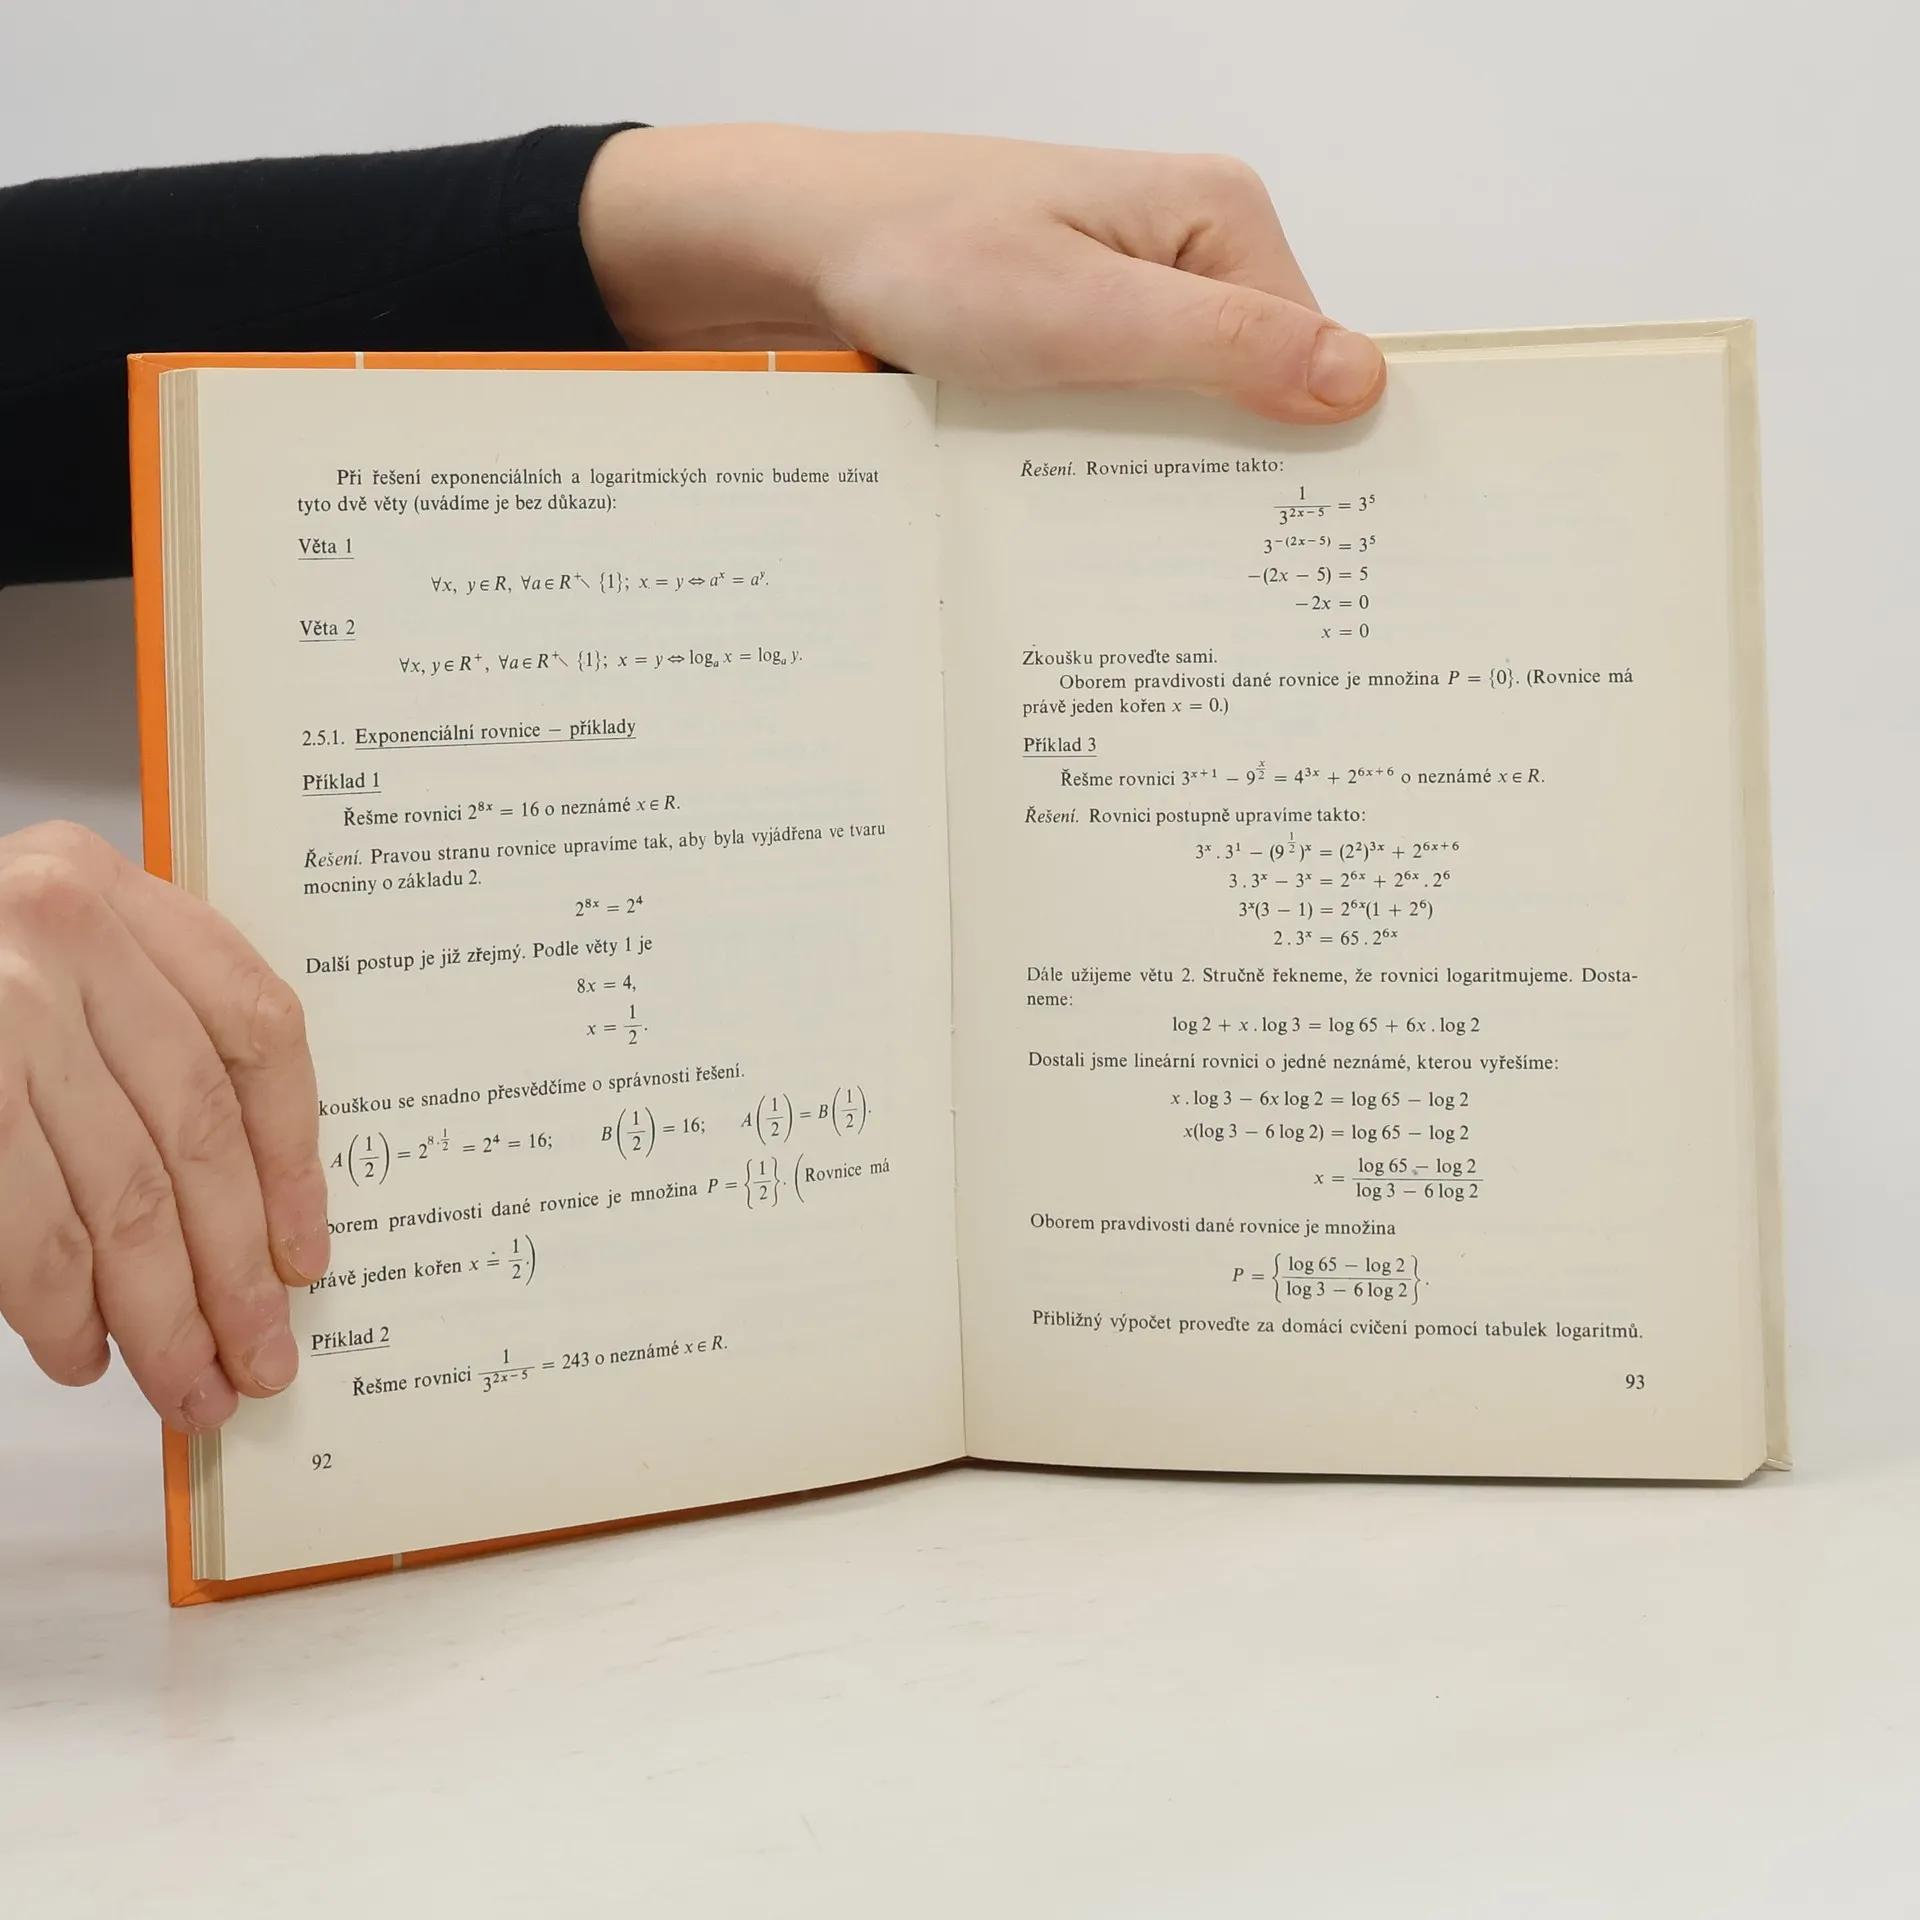 Při řešení exponenciálních a logaritmických rovnic budeme užívat
tyto dvě věty (uvádíme je bez důkazu):
Věta 1
∀x, y ∈ R, ∀a ∈ R⁺ \ {1}; x = y ⇔ aˣ = aʸ.
Věta 2
∀x, y ∈ R⁺, ∀a ∈ R⁺ \ {1}; x = y ⇔ logₐ x = logₐ y.
2.5.1. Exponenciální rovnice – příklady
Příklad 1
Řešme rovnici 2⁸ˣ = 16 o neznámé x ∈ R.
Řešení. Pravou stranu rovnice upravíme tak, aby byla vyjádřena ve tvaru
mocniny o základu 2.
2⁸ˣ = 2⁴
Další postup je již zřejmý. Podle věty 1 je
8x = 4,
x = 1/2.
kouškou se snadno přesvědčíme o správnosti řešení.
A(1/2) = 2^(8·1/2) = 2⁴ = 16; B(1/2) = 16; A(1/2) = B(1/2).
borem pravdivosti dané rovnice je množina P = {1/2}. (Rovnice má
právě jeden kořen x = 1/2.)
Příklad 2
Řešme rovnici 1/3^(2x−5) = 243 o neznámé x ∈ R.
92
Řešení. Rovnici upravíme takto:
1/3^(2x−5) = 3⁵
3^(−(2x−5)) = 3⁵
−(2x − 5) = 5
−2x = 0
x = 0
Zkoušku proveďte sami.
Oborem pravdivosti dané rovnice je množina P = {0}. (Rovnice má
právě jeden kořen x = 0.)
Příklad 3
Řešme rovnici 3^(x+1) − 9^(x/2) = 4^(3x) + 2^(6x+6) o neznámé x ∈ R.
Řešení. Rovnici postupně upravíme takto:
3ˣ . 3¹ − (9^(1/2))ˣ = (2²)³ˣ + 2^(6x+6)
3 . 3ˣ − 3ˣ = 2⁶ˣ + 2⁶ˣ . 2⁶
3ˣ(3 − 1) = 2⁶ˣ(1 + 2⁶)
2 . 3ˣ = 65 . 2⁶ˣ
Dále užijeme větu 2. Stručně řekneme, že rovnici logaritmujeme. Dosta-
neme:
log 2 + x . log 3 = log 65 + 6x . log 2
Dostali jsme lineární rovnici o jedné neznámé, kterou vyřešíme:
x . log 3 − 6x log 2 = log 65 − log 2
x(log 3 − 6 log 2) = log 65 − log 2
x = (log 65 − log 2)/(log 3 − 6 log 2)
Oborem pravdivosti dané rovnice je množina
P = {(log 65 − log 2)/(log 3 − 6 log 2)}.
Přibližný výpočet proveďte za domácí cvičení pomocí tabulek logaritmů.
93